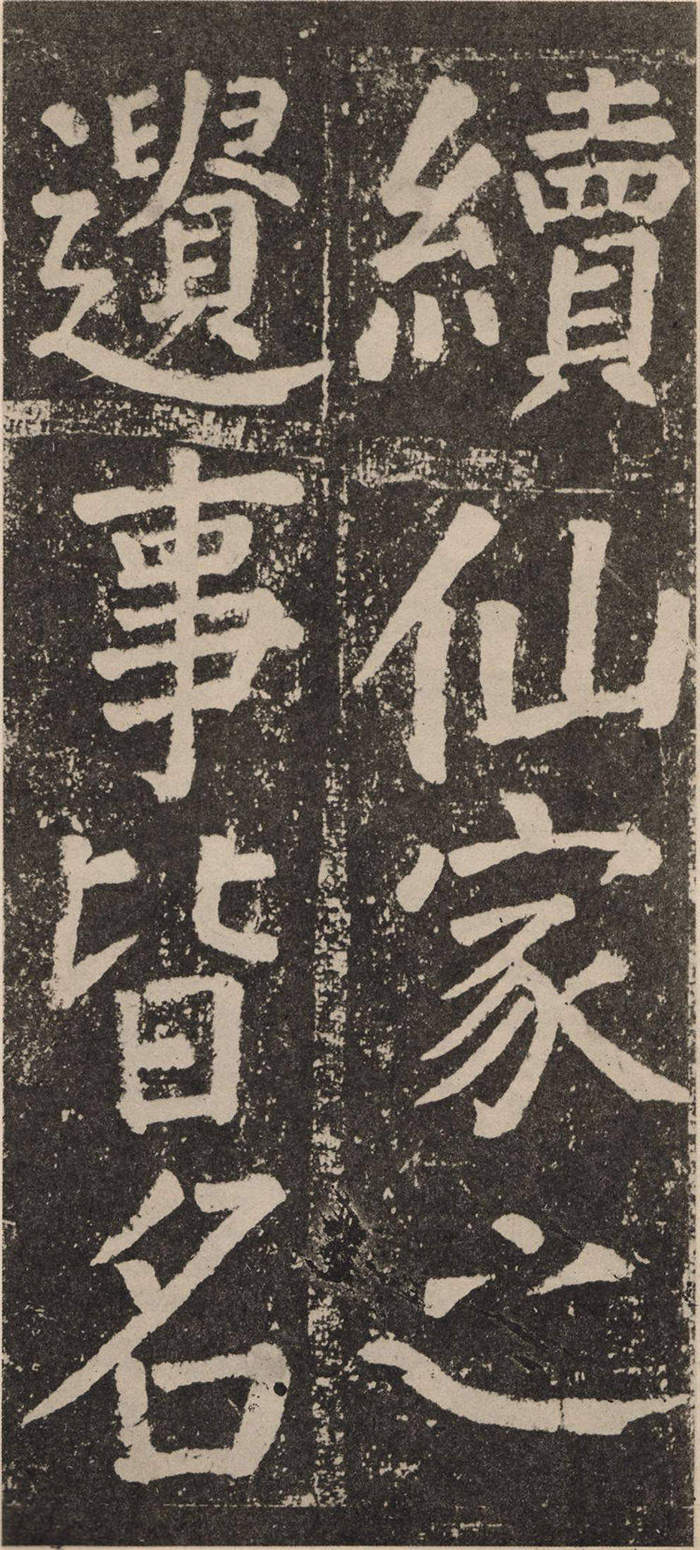 續仙家之
遺事皆名